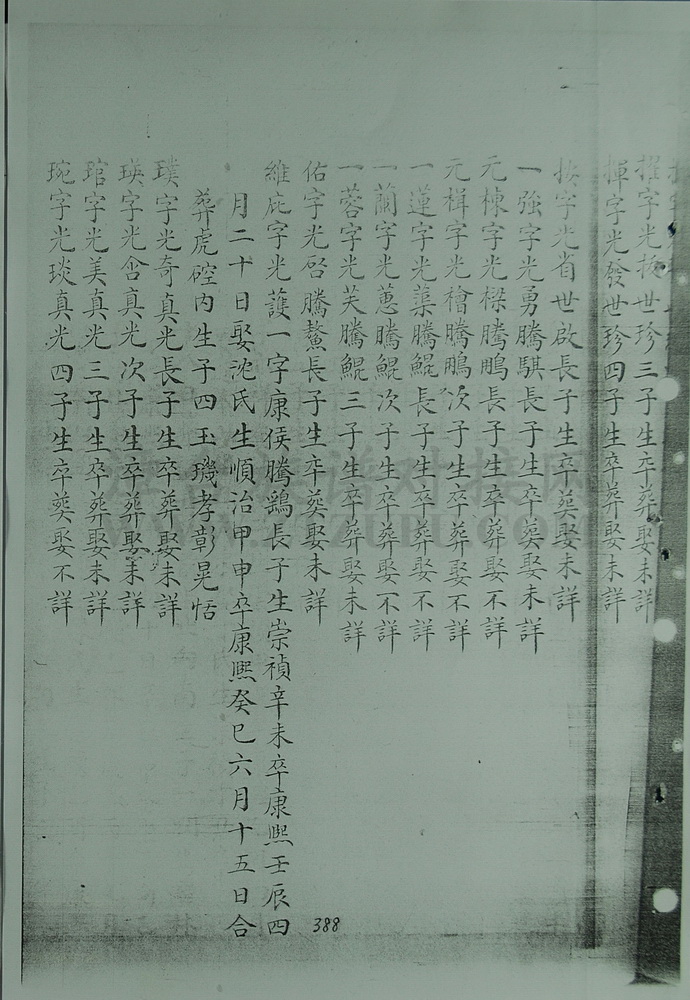 字光 世珍三子生卒葬娶未詳
揮字光發世珍四子生卒葬娶未詳
字光省世啟長子生卒葬娶未詳
一強字光勇騰騏長子生卒葬娶未詳
元棟字光樑騰鵬長子生卒葬娶不詳
元楫字光檜騰鵬次子生卒葬娶不詳
一蓮字光蕖騰鯤長子生卒葬娶不詳
一蘭字光蕙騰鯤次子生卒葬娶不詳
一蓉字光芙騰鯤三子生卒葬娶未詳
佑字光啓騰鰲長子生卒葬娶未詳
維庇字光護一字康侯騰鷂長子生崇禎辛未卒康熙壬辰四
月二十日娶沈氏生順治甲申卒康熙癸巳六月十五日合
葬虎硿內生子四玉璣孝彰晃恬
璞字光奇真光長子生卒葬娶未詳
瑛字光含真光次子生卒葬娶未詳
琯字光美真光三子生卒葬娶未詳
琬字光琰真光四子生卒葬娶不詳
388